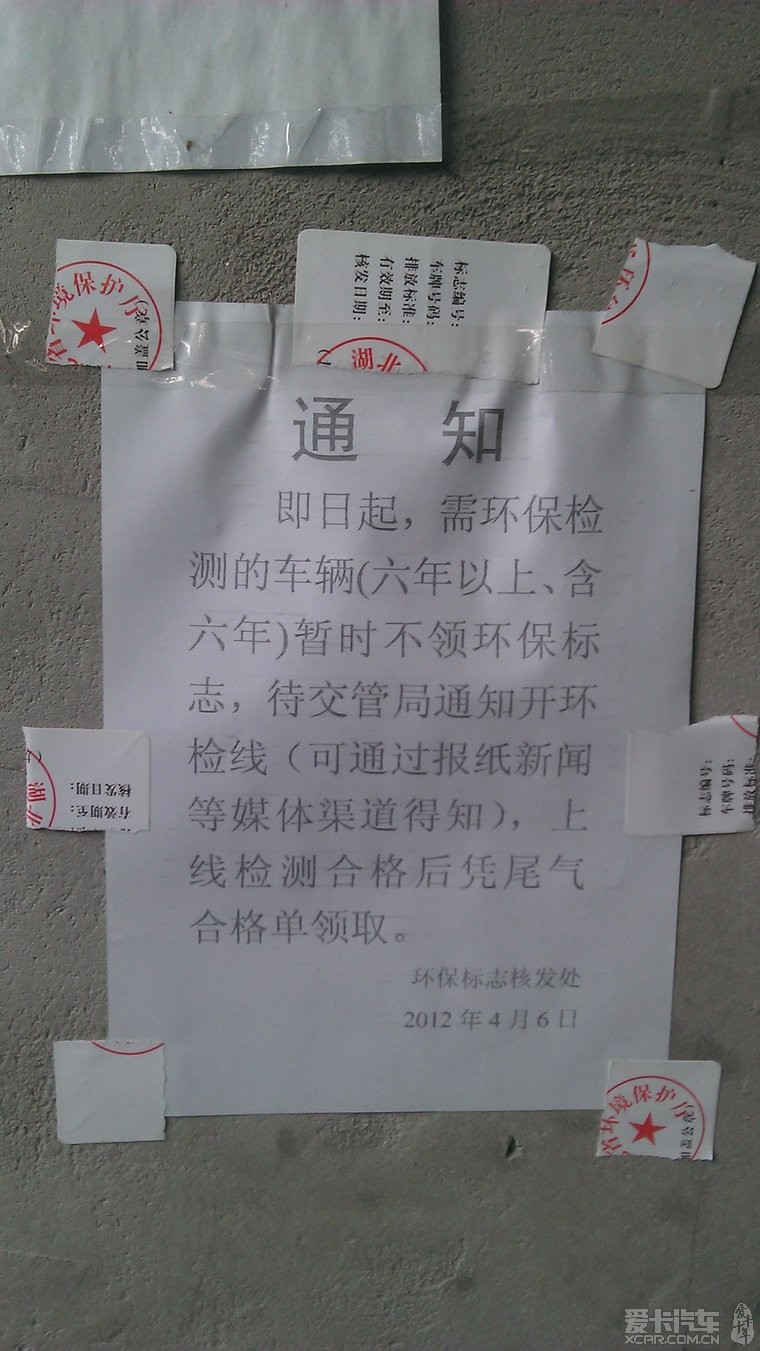 标志编号:
车牌号码:
排放标准:
有效期至:
核发日期:
湖北
境保护厅
通 知
即日起，需环保检
测的车辆(六年以上、含
六年)暂时不领环保标
志，待交管局通知开环
检线（可通过报纸新闻
等媒体渠道得知），上
线检测合格后凭尾气
合格单领取。
环保标志核发处
2012 年 4 月 6 日
核发日期:
有效期至:
湖北
标志编号:
车牌号码:
排放标准:
省环境保护厅
爱卡汽车
XCAR.COM.CN